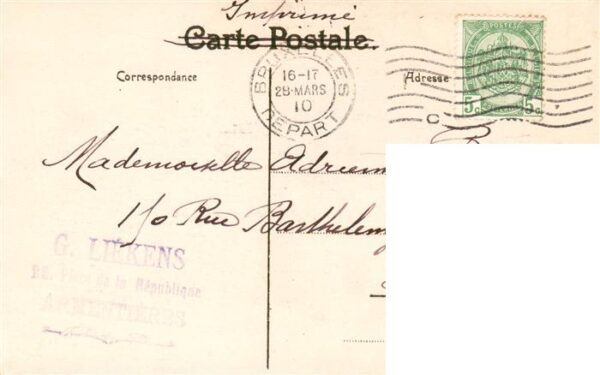 Imprimé
Carte Postale.
Correspondance
Adresse
BRUXELLES
16-17
28 MARS
10
DÉPART
5c 5c
Mademoiselle
Rue Barthelemy
G. LIEKENS
Place de la République
ARMENTIÈRES